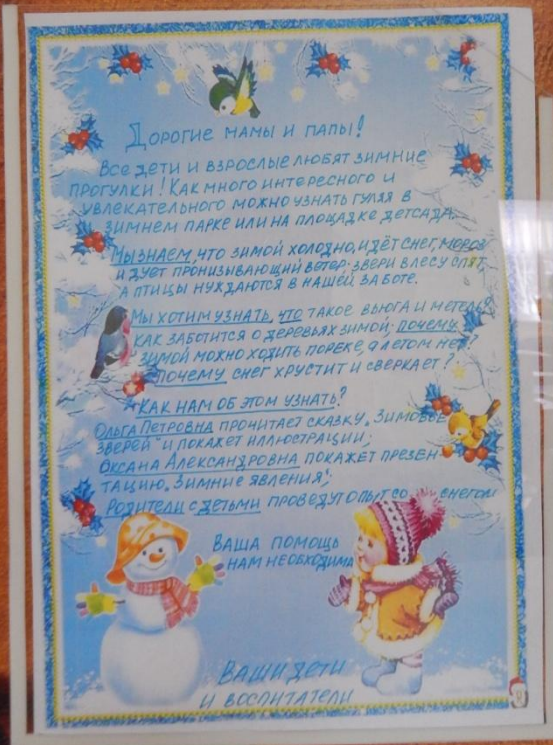 Дорогие мамы и папы!
Все дети и взрослые любят зимние
прогулки! Как много интересного и
увлекательного можно узнать гуляя в
зимнем парке или на площадке детсада.
Мы знаем, что зимой холодно, идёт снег, мороз
и дует пронизывающий ветер; звери в лесу спят,
а птицы нуждаются в нашей заботе.
Мы хотим узнать, что такое вьюга и метель?
Как заботится о деревьях зимой; почему
зимой можно ходить по реке, а летом нет?
Почему снег хрустит и сверкает?
Как нам об этом узнать?
Ольга Петровна прочитает сказку „Зимовье
зверей" и покажет иллюстрации;
Оксана Александровна покажет презен-
тацию „Зимние явления";
Родители с детьми проведут опыт со снегом
Ваша помощь
нам необходима
Ваши дети
и воспитатели